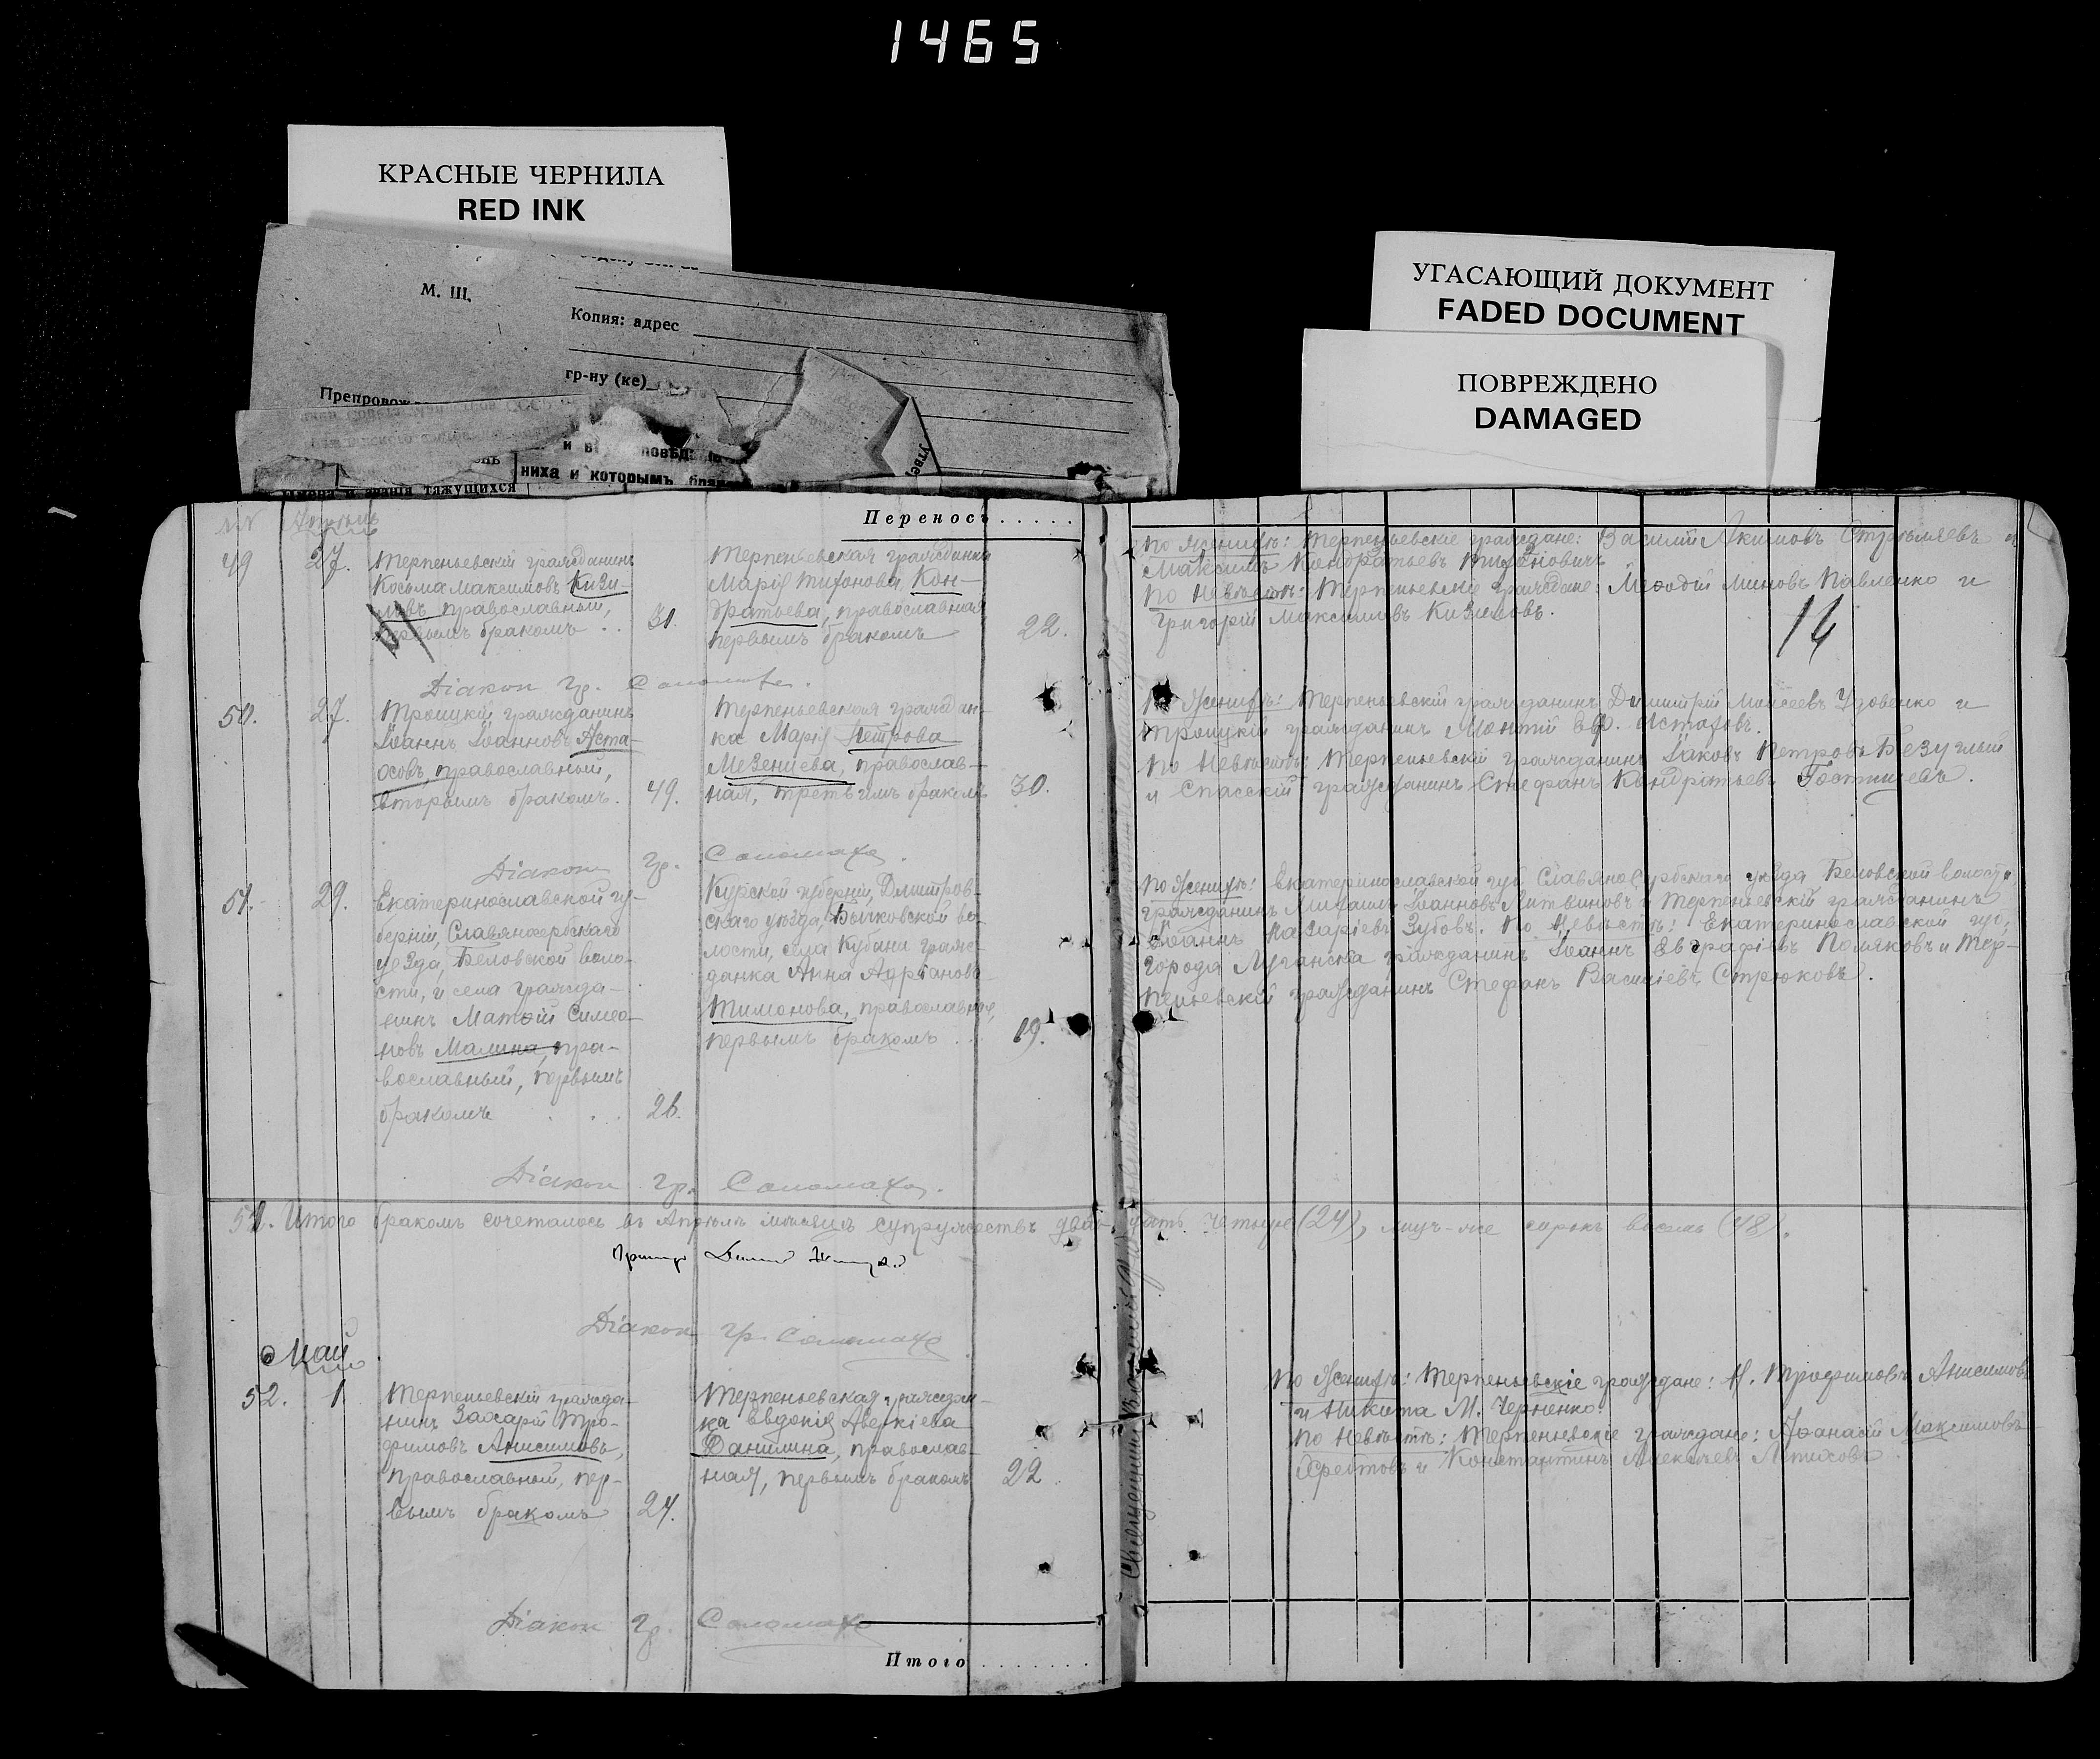 1465
КРАСНЫЕ ЧЕРНИЛА
RED INK
УГАСАЮЩИЙ ДОКУМЕНТ
FADED DOCUMENT
ПОВРЕЖДЕНО
DAMAGED
М. Ш.
Копия: адрес
гр-ну (ке)
Препровож
ниха и которымъ
Имена и званія тяжущихся
Переносъ . . . . .
49 27. Терпеньевскій гражданинъ
Косьма Максимовъ Кизи-
мовъ, православный,
первымъ бракомъ . . 31.
Терпеньевская гражданка
Марія Тихонова Кон-
дратьева, православная
первымъ бракомъ 22.
По Женихѣ: Терпеньевскіе граждане: Василій Акимовъ и
Максимъ Кондратьевъ
По Невѣстѣ: Терпеньевскіе граждане: Меѳодій Миновъ Павленко и
Григорій Максимовъ Кизимовъ.
16
Діакон Гр. Соломаха.
50. 27. Троицкій гражданинъ
Іоаннъ Іоанновъ Аста-
православный,
вторымъ бракомъ. 49.
Терпеньевская граждан-
ка Марія Петрова
Мезенцева, православ-
ная, третьимъ бракомъ 30.
По Женихѣ: Терпеньевскій гражданинъ Димитрій Моисеевъ Удовенко и
Троицкій гражданинъ
По Невѣстѣ: Терпеньевскій гражданинъ Іаковъ Петровъ Безуглый
и Спасскій гражданинъ Стефанъ Кондратьевъ Гостищевъ.
Діакон Гр. Соломаха.
51. 29. Екатеринославской гу-
берніи, Славяносербскаго
уезда, Беловской воло-
сти, и села гражда-
нинъ Матѳій Симео-
новъ Малина, пра-
вославный, первымъ
бракомъ . . . 26.
Курской губерніи, Дмитров-
скаго уѣзда, во-
лости, села граж-
данка Анна Адріанова
Тимонова, православная,
первымъ бракомъ . . . 19.
По Женихѣ: Екатеринославской губ. Славяносербскаго уѣзда Беловской волости
гражданинъ Михаилъ Іоанновъ Литвиновъ и Терпеньевскій гражданинъ
Іоаннъ Назаріевъ Зубовъ. По Невѣстѣ: Екатеринославской губ,
города Луганска гражданинъ Іоаннъ Евграфіевъ Поляковъ и Тер-
пеньевскій гражданинъ Стефанъ Василіевъ Стрюковъ.
Діакон Гр. Соломаха.
Итого бракомъ сочеталось въ Апрѣлѣ мѣсяцѣ супружествъ двадцать четыре (24), лицъ-же сорокъ восемь (48).
Діакон Гр. Соломаха
Май
52. 1. Терпеньевскій гражда-
нинъ Захарій Тро-
фимовъ Анисимовъ,
православный, пер-
вымъ бракомъ 24.
Терпеньевская граждан-
ка Евдокія Аверкіева
Данилина, православ-
ная, первымъ бракомъ 22.
По Женихѣ: Терпеньевскіе граждане: Трофимовъ Анисимовъ
и Никита М. Черненко.
По Невѣстѣ: Терпеньевскіе граждане: Аѳанасій Максимовъ
и Константинъ Алексѣевъ
Діакон Гр. Соломаха
Итого . . . . . . .